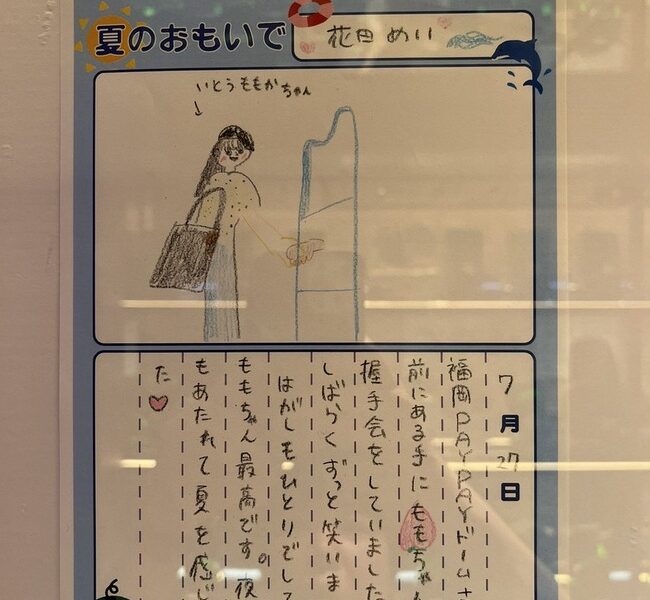 夏のおもいで
花田めい
いとうももかちゃん
7月27日
福岡PAYPAYドームさ
前にある手にももちゃん
握手会をしていました
しばらくずっと笑いま
はがしもひとりでして
ももちゃん最高です。夜
もあたれて夏を感じ
た
6